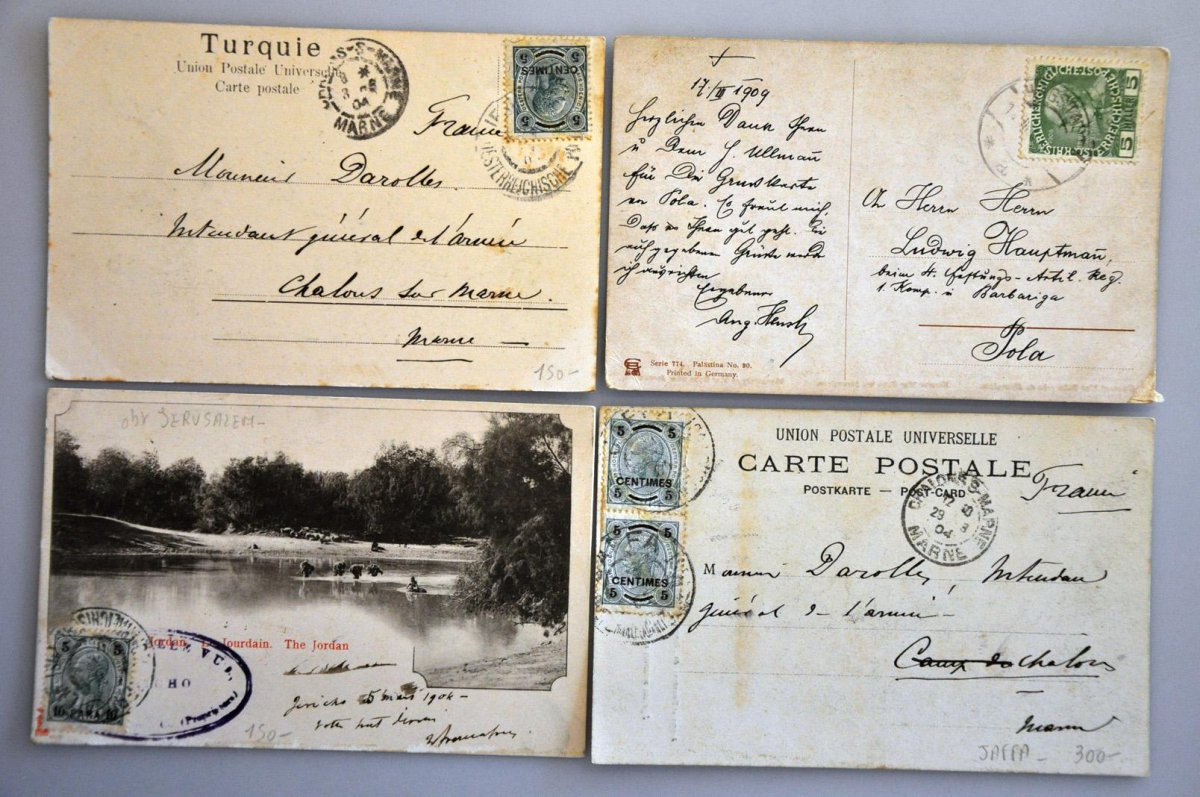 Turquie
Union Postale Universelle
Carte postale
CHALONS-S-MARNE
MARNE
5 5
CENTIMES
OESTERREICHISCHE PO
France
Monsieur Darolles.
Intendant général de l'armée
Chalons sur Marne.
Marne
150-
17/ 1909
Herzlichen Dank Ihnen
u Dem H. Ullmann
für Die Grusskarte
von Pola. Es freut mich,
Dass es Ihnen gut geht. Die
aufgegebenen Grüsse werde
ich ausrichten
Ergebener
Serie 774. Palästina No. 80.
Printed in Germany.
5 5
An Herrn Herrn
Ludwig Hauptmann,
beim Festungs-Artil. Reg.
1. Komp. Barbariga
Pola
JERUSALEM-
Jordan. Le Jourdain. The Jordan
5
10 PARA 10
CHO
Jericho 5 mars 1904-
150-
5 5
CENTIMES
5 5
5 5
CENTIMES
5 5
UNION POSTALE UNIVERSELLE
CARTE POSTALE
POSTKARTE — POST-CARD
France
CHALONS S MARNE
29 3
04
MARNE
Monsieur Darolles, Intendant
général de l'armée
Camp de Chalons
Marne
JAFFA - 300-